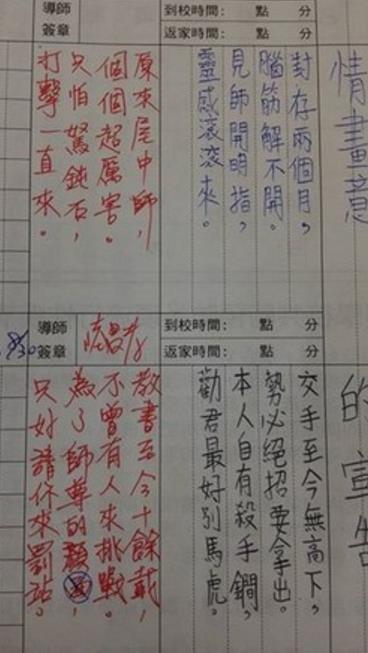 到校時間: 點 分
返家時間: 點 分
導師
簽章
情畫意
封存兩個月,
腦筋解不開。
見師開明指,
靈感滾滾來。
原來尾中師,
個個超厲害。
只怕駑鈍石,
打擊一直來。
到校時間: 點 分
返家時間: 點 分
導師
簽章
的宣告
交手至今無高下,
勢必絕招要拿出。
本人自有殺手鐧,
勸君最好別馬虎。
教書至今十餘載,
不曾有人來挑戰。
為了師尊的
只好請你來罰站。